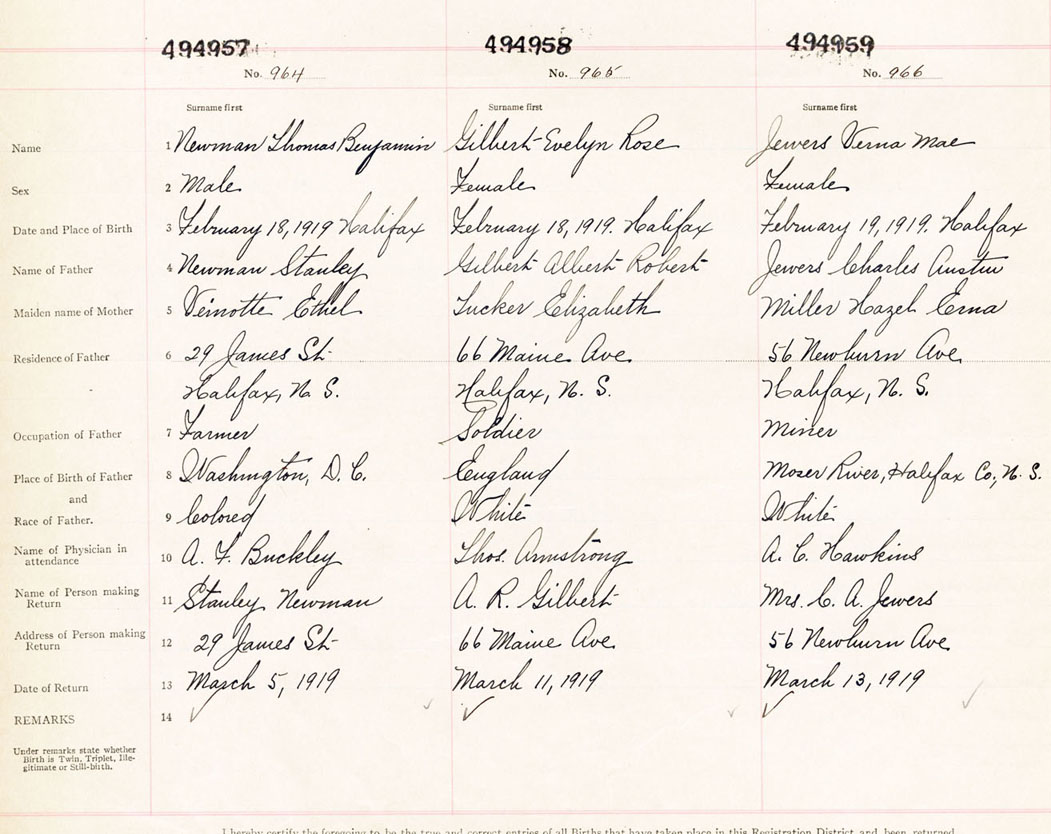 494957 494958 494959
No. 964 No. 965 No. 966
Surname first Surname first Surname first
Name 1 Newman Thomas Benjamin Gilbert Evelyn Rose Jewers Verna Mae
Sex 2 Male Female Female
Date and Place of Birth 3 February 18, 1919 Halifax February 18, 1919. Halifax February 19, 1919. Halifax
Name of Father 4 Newman Stanley Gilbert Albert Robert Jewers Charles Austin
Maiden name of Mother 5 Veinotte Ethel Tucker Elizabeth Miller Hazel Erna
Residence of Father 6 29 James St 66 Maine Ave. 56 Newburn Ave.
Halifax, N. S. Halifax, N. S. Halifax, N. S.
Occupation of Father 7 Farmer Soldier Miner
Place of Birth of Father 8 Washington, D. C. England Moser River, Halifax Co., N. S.
and
Race of Father. 9 Colored White White
Name of Physician in
attendance 10 A. F. Buckley Thos. Armstrong A. C. Hawkins
Name of Person making
Return 11 Stanley Newman A. R. Gilbert Mrs. C. A. Jewers
Address of Person making
Return 12 29 James St 66 Maine Ave. 56 Newburn Ave.
Date of Return 13 March 5, 1919 March 11, 1919 March 13, 1919
REMARKS 14
Under remarks state whether
Birth is Twin, Triplet, Ille-
gitimate or Still-birth.
I hereby certify the foregoing to be the true and correct entries of all Births that have taken place in this Registration District and been returned